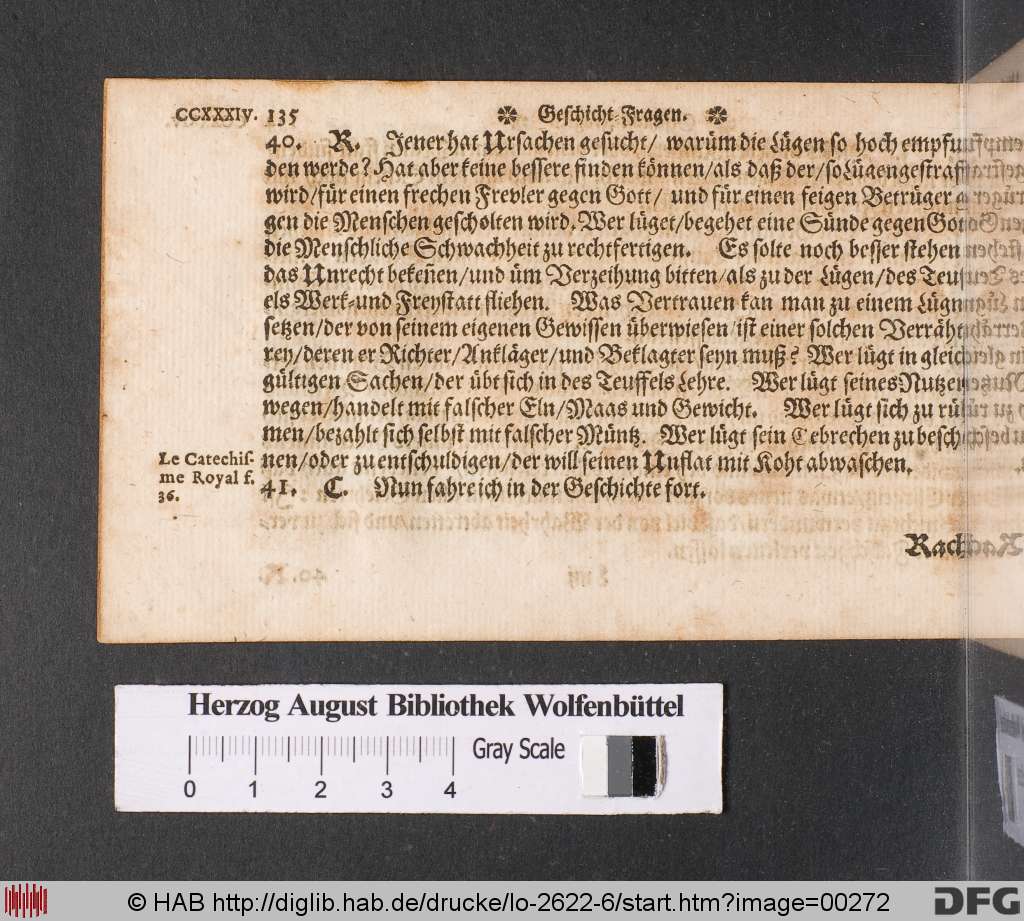 CCXXXIV. 135 Geschicht-Fragen.
40. R. Jener hat Ursachen gesucht/ warüm die Lügen so hoch empfun-
den werde? Hat aber keine bessere finden können/als daß der/so Lügengestrafft
wird/für einen frechen Frevler gegen Gott/ und für einen feigen Betrüger
gen die Menschen gescholten wird. Wer lüget/begehet eine Sünde gegen Gott
die Menschliche Schwachheit zu rechtfertigen. Es solte noch besser stehen
das Unrecht bekeñen/und üm Verzeihung bitten/als zu der Lügen/des Teuf-
els Werk-und Freystatt fliehen. Was Vertrauen kan man zu einem Lügner
setzen/der von seinem eigenen Gewissen überwiesen/ist einer solchen Verräthe-
rey/deren er Richter/Ankläger/und Beklagter seyn muß? Wer lügt in gleich-
gültigen Sachen/der übt sich in des Teuffels Lehre. Wer lügt seines Nutzens
wegen/handelt mit falscher Eln/Maas und Gewicht. Wer lügt sich zu rüh-
men/bezahlt sich selbst mit falscher Müntz. Wer lügt sein Gebrechen zu besch
Le Catechis-
me Royal f.
36.
nen/oder zu entschuldigen/der will seinen Unflat mit Koht abwaschen.
41. C. Nun fahre ich in der Geschichte fort.
Nach
Herzog August Bibliothek Wolfenbüttel
Gray Scale
0 1 2 3 4
© HAB http://diglib.hab.de/drucke/lo-2622-6/start.htm?image=00272
DFG